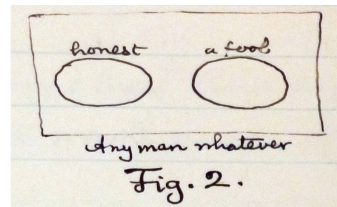 honest a fool
Any man whatever
Fig. 2.